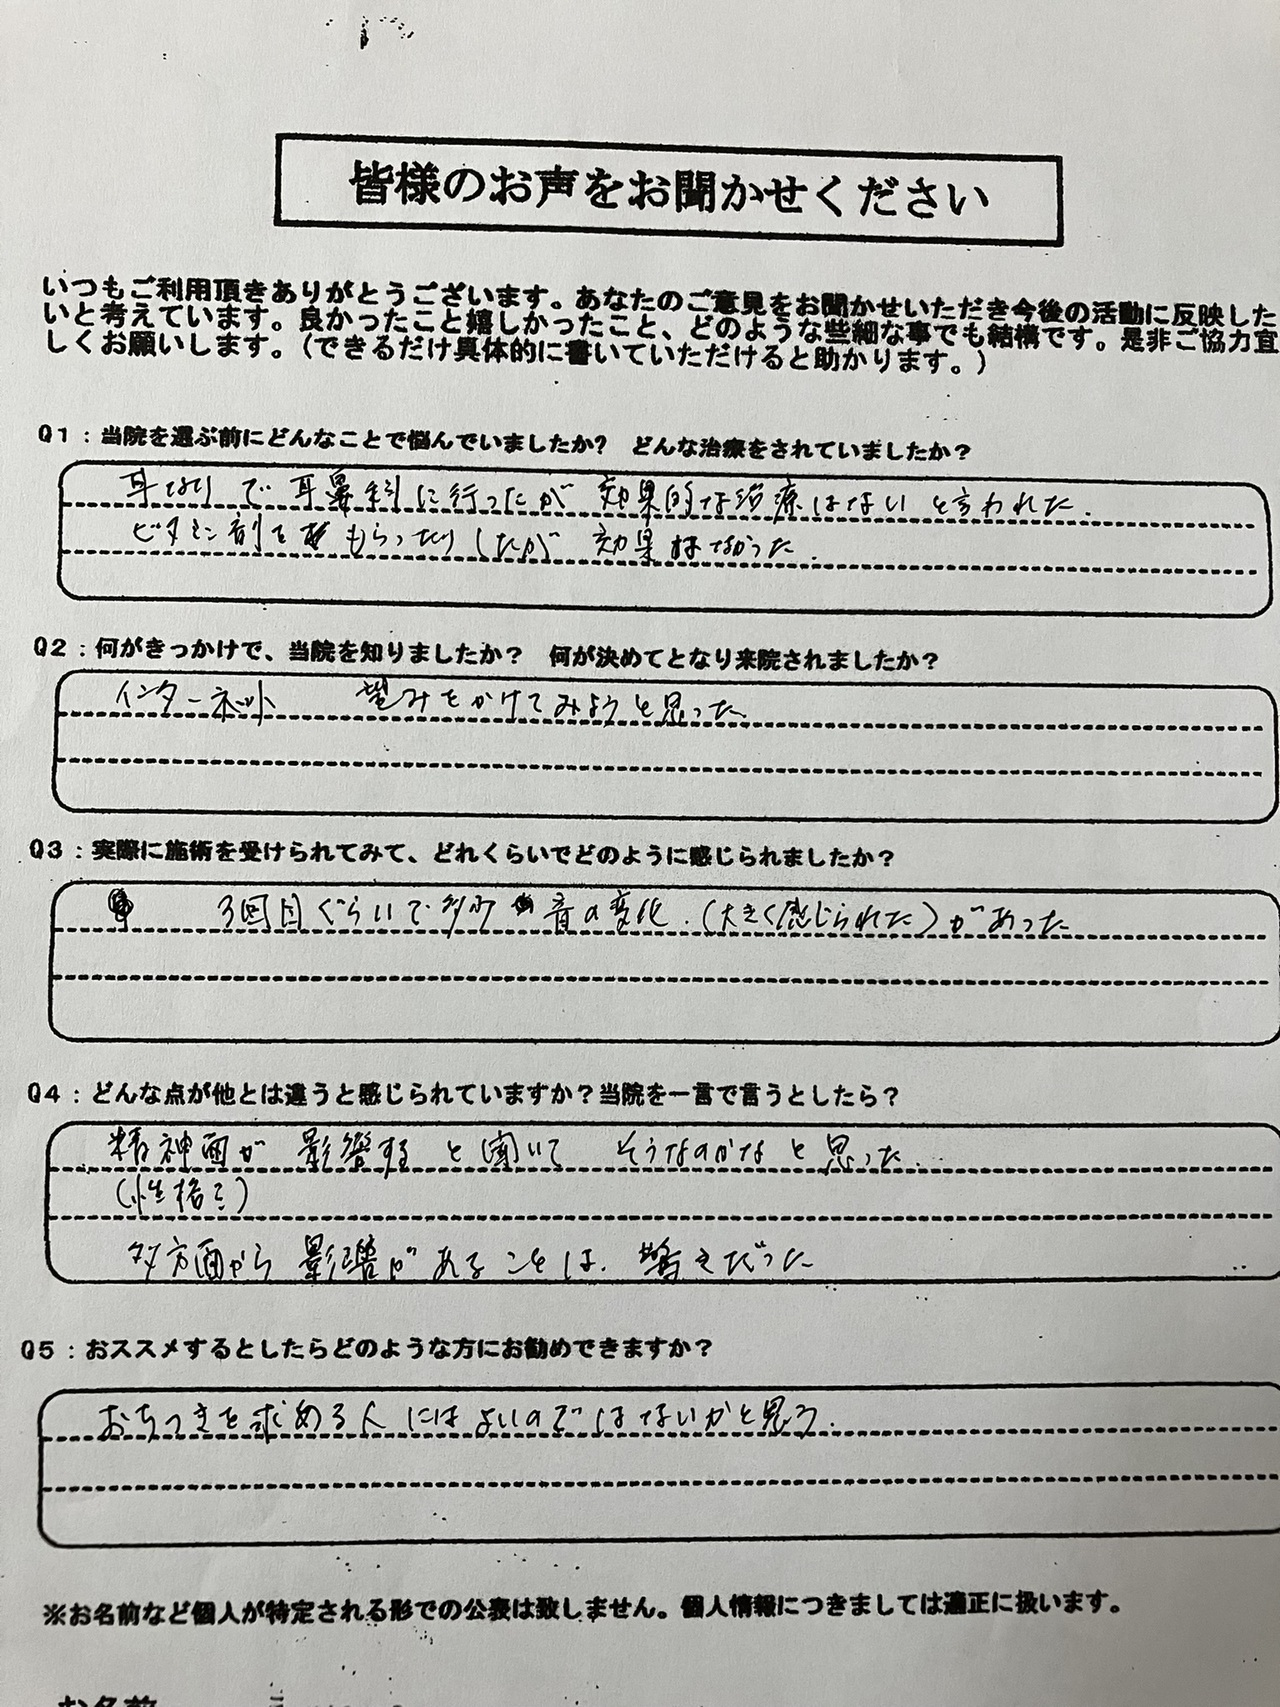 皆様のお声をお聞かせください
いつもご利用頂きありがとうございます。あなたのご意見をお聞かせいただき今後の活動に反映した
いと考えています。良かったこと嬉しかったこと、どのような些細な事でも結構です。是非ご協力宜
しくお願いします。（できるだけ具体的に書いていただけると助かります。）
Q1：当院を選ぶ前にどんなことで悩んでいましたか？ どんな治療をされていましたか？
耳なりで耳鼻科に行ったが 効果的な治療はないと言われた.
ビタミン剤をもらったりしたが 効果はなかった.
Q2：何がきっかけで、当院を知りましたか？ 何が決めてとなり来院されましたか？
インターネット 望みをかけてみようと思った.
Q3：実際に施術を受けられてみて、どれくらいでどのように感じられましたか？
3回目ぐらいで多少音の変化.（大きく感じられた）があった
Q4：どんな点が他とは違うと感じられていますか？当院を一言で言うとしたら？
精神面が影響すると聞いて そうなのかなと思った.
多方面から影響があることは. 驚きだった
Q5：おススメするとしたらどのような方にお勧めできますか？
おちつきを求める人にはよいのではないかと思う.
※お名前など個人が特定される形での公表は致しません。個人情報につきましては適正に扱います。
お名前